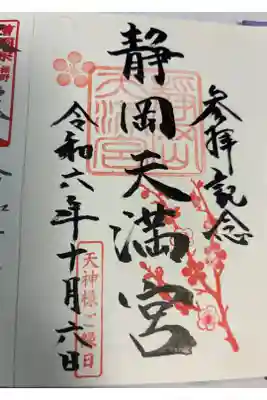 参拝記念
静岡天満宮
令和六年十月六日
天神様ご縁日